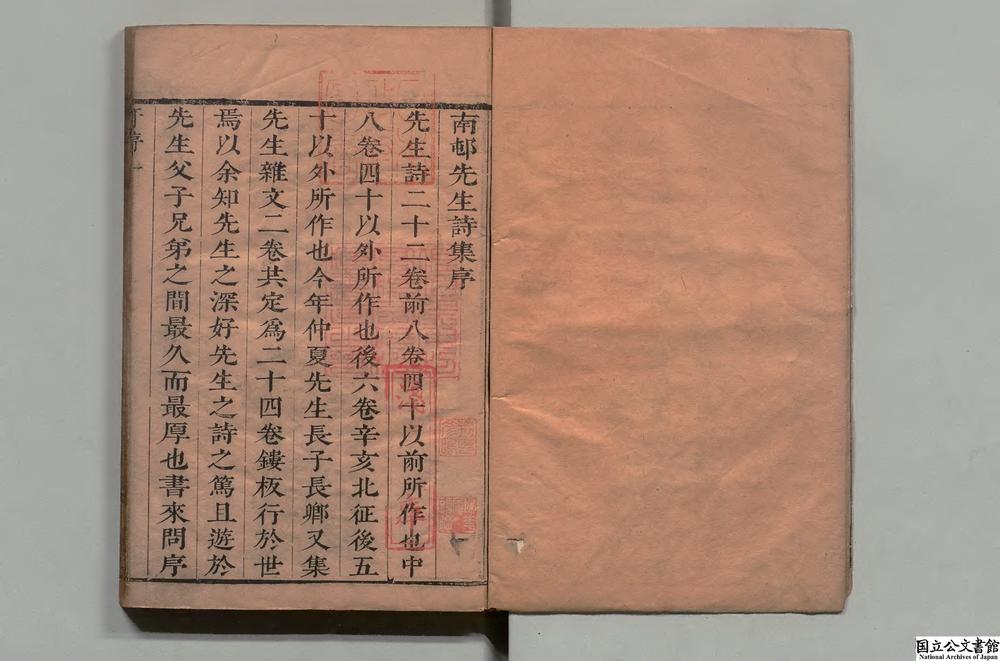 南邨先生詩集序
先生詩二十二卷前八卷四十以前所作也中
八卷四十以外所作也後六卷辛亥北征後五
十以外所作也今年仲夏先生長子長鄉又集
先生雜文二卷共定爲二十四卷鏤板行於世
焉以余知先生之深好先生之詩之篤且遊於
先生父子兄弟之間最久而最厚也書來問序
国立公文書館
National Archives of Japan